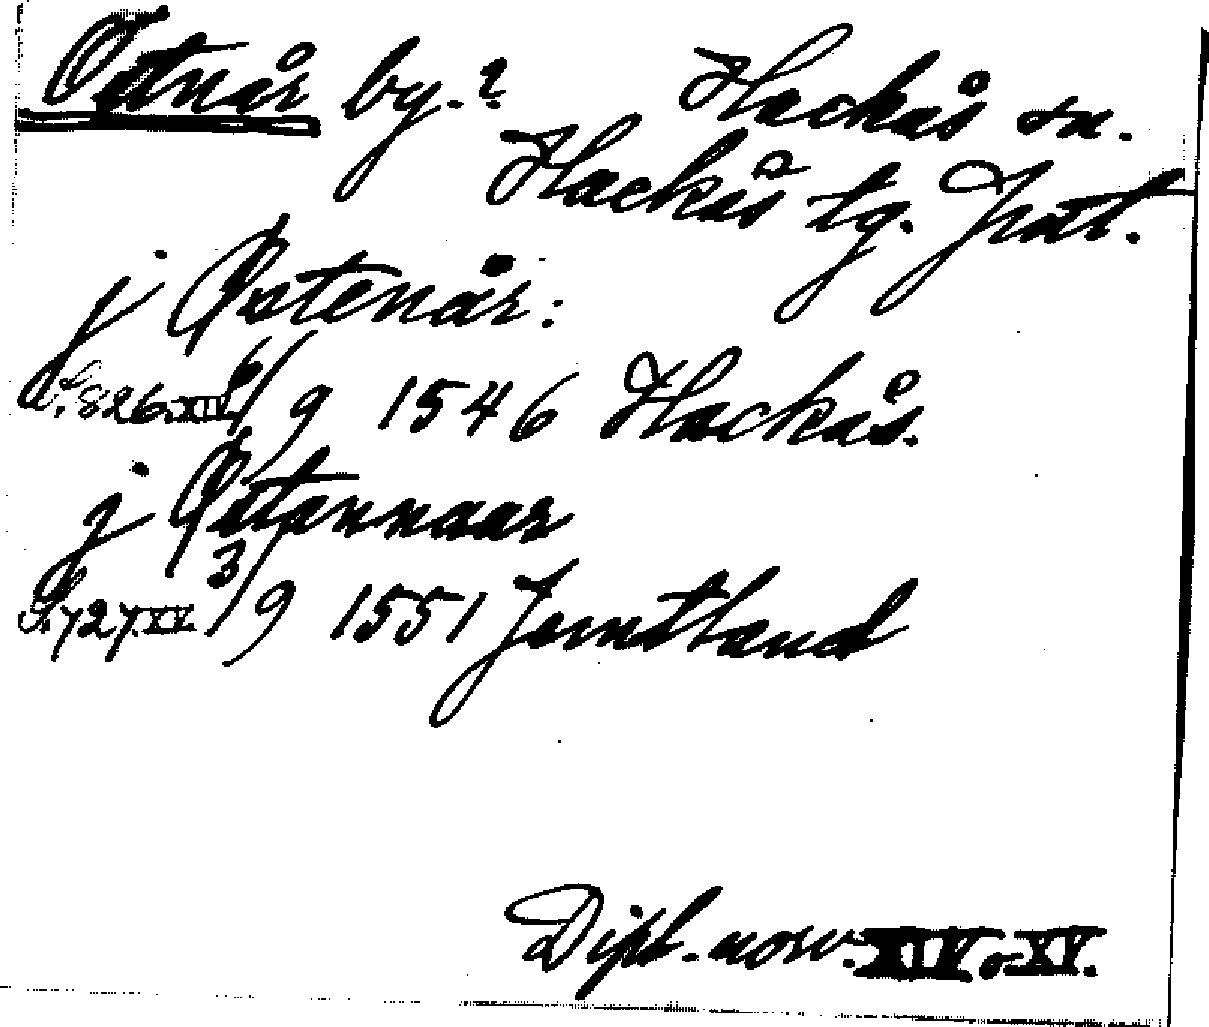 Östnår by.? Hackås sn.
Hackås tg. Jmtl.
j Østenår:
S. 826.XIV 6/9 1546 Hackås.
j Østannaar
S. 727.XV 3/9 1551 Jemtland
Dipl. norv. XIV o XV.